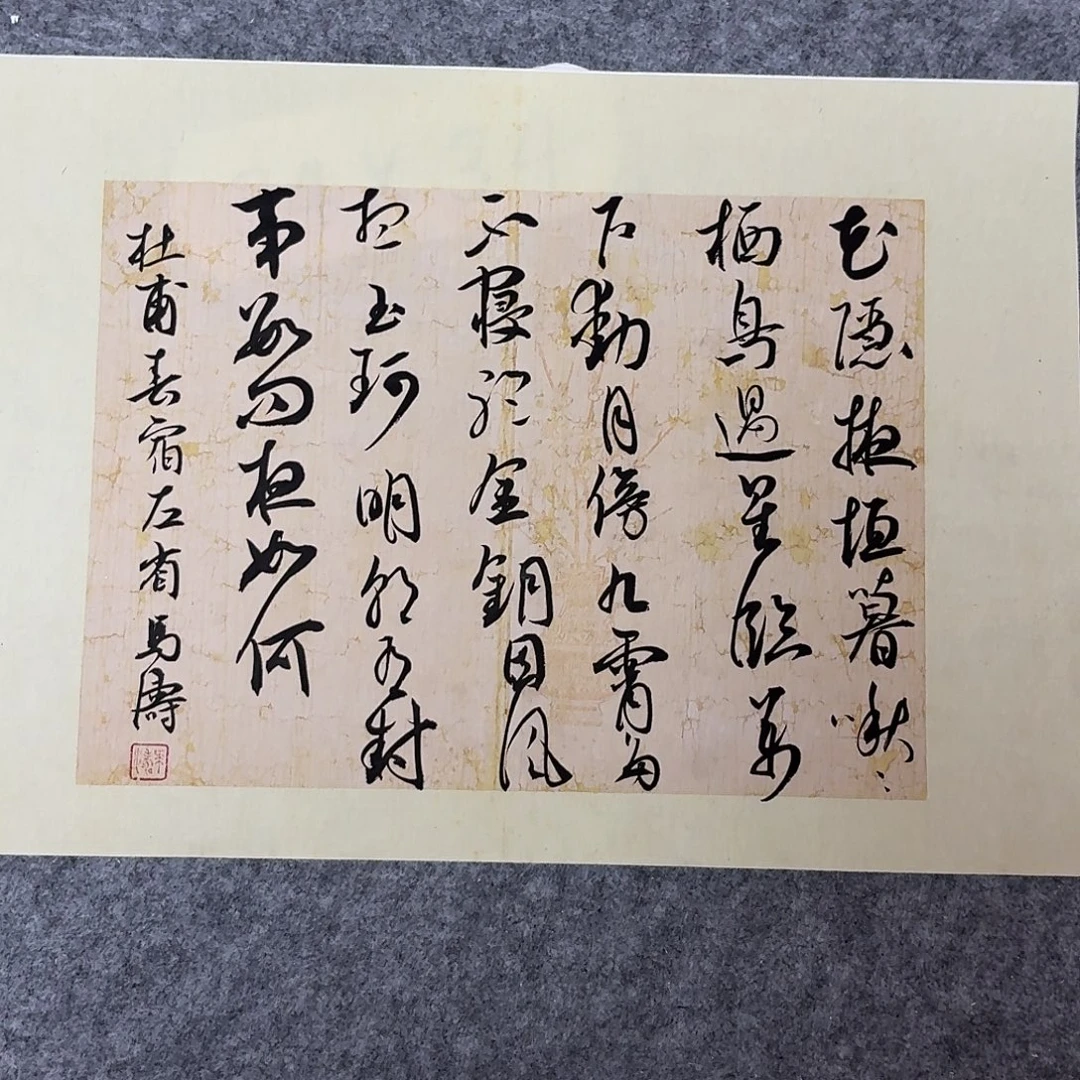 花隱掖垣暮啾〻
栖鳥過星臨萬
戶動月傍九霄多
不寢聽金鈅因風
想玉珂明朝有封
事數問夜如何
杜甫春宿左省 馬濤